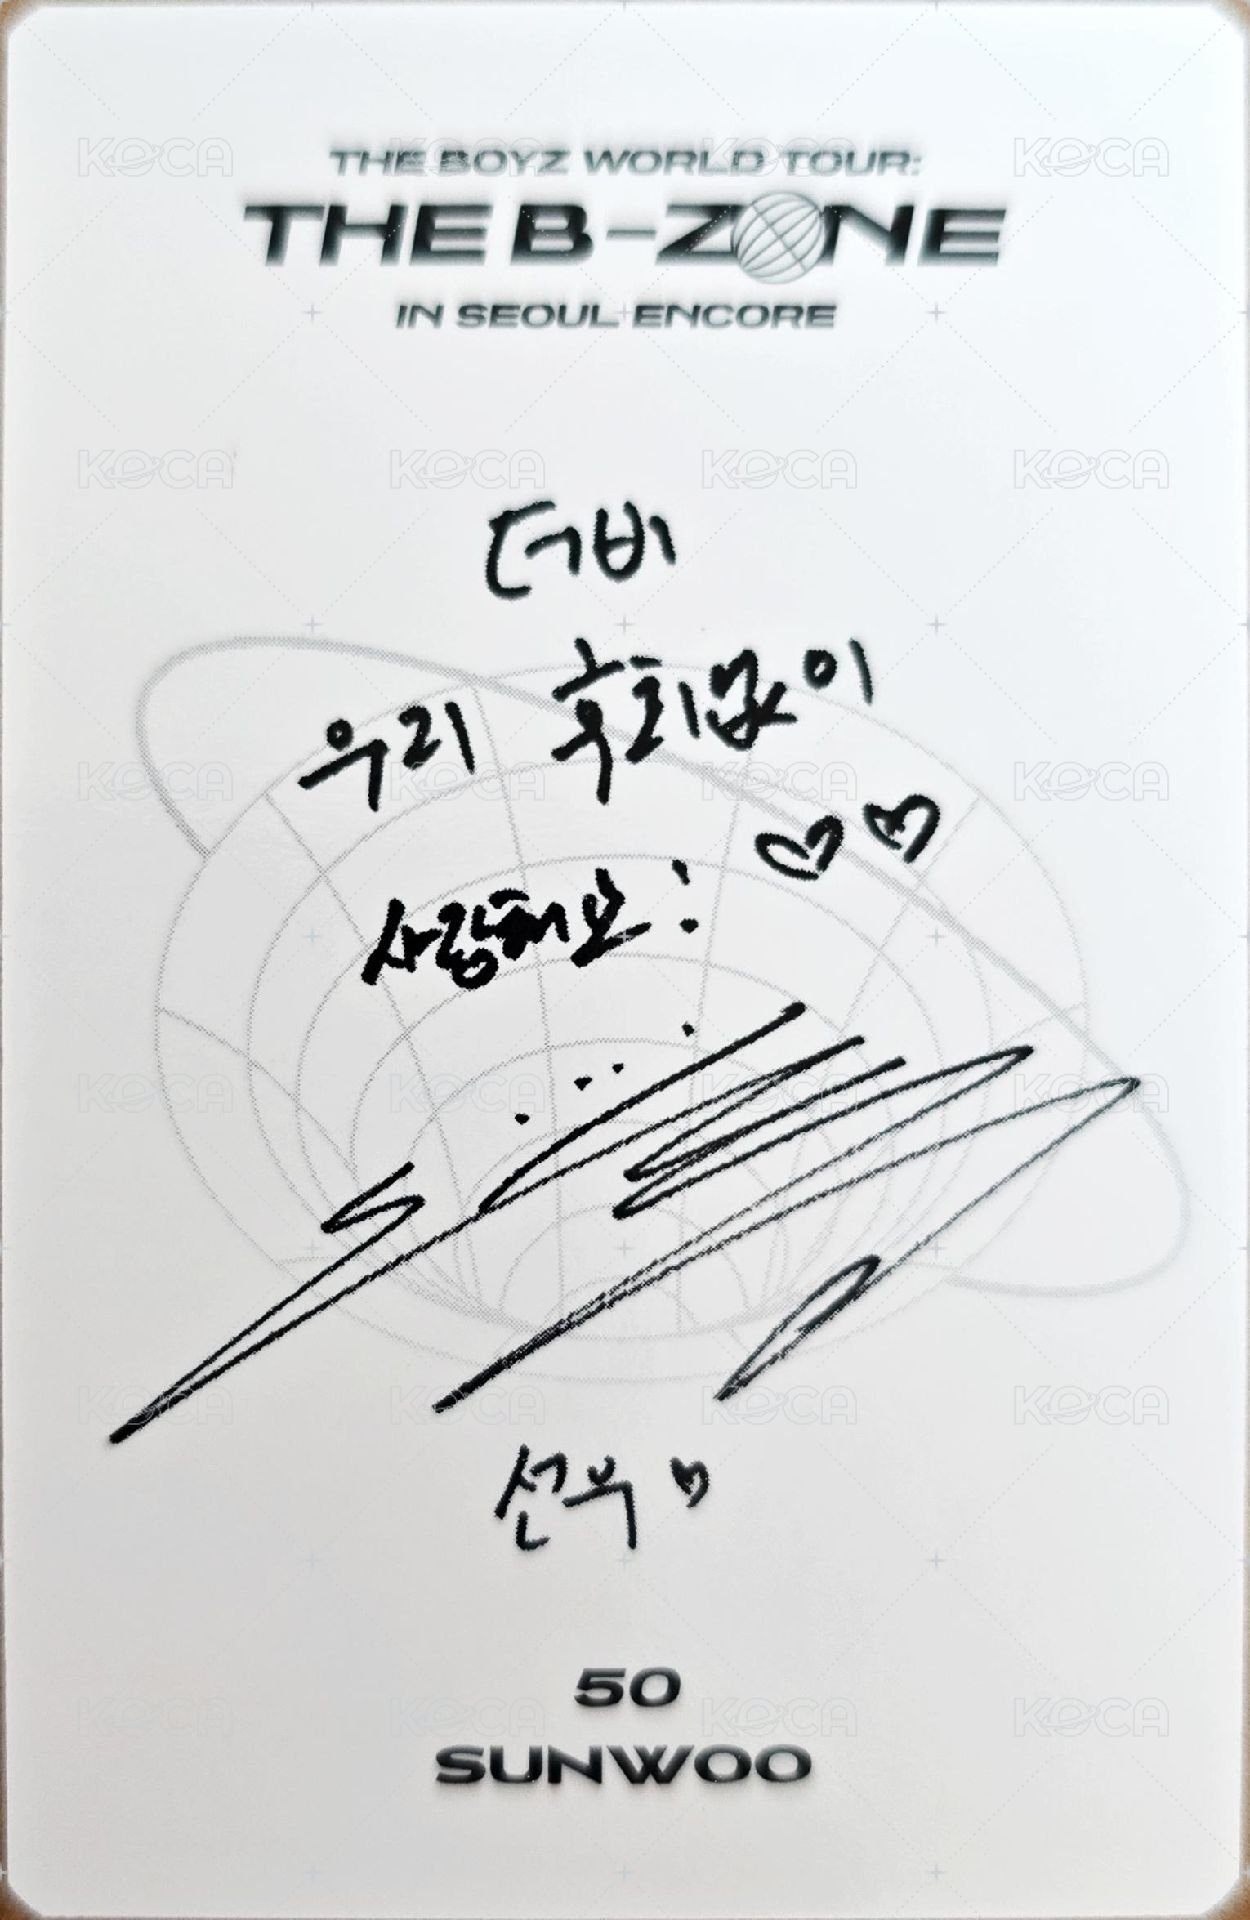 THE BOYZ WORLD TOUR:
THE B-ZONE
IN SEOUL ENCORE
더비
우리 후회없이
사랑해요! ♡♡
선우 ♡
50
SUNWOO
KOCA